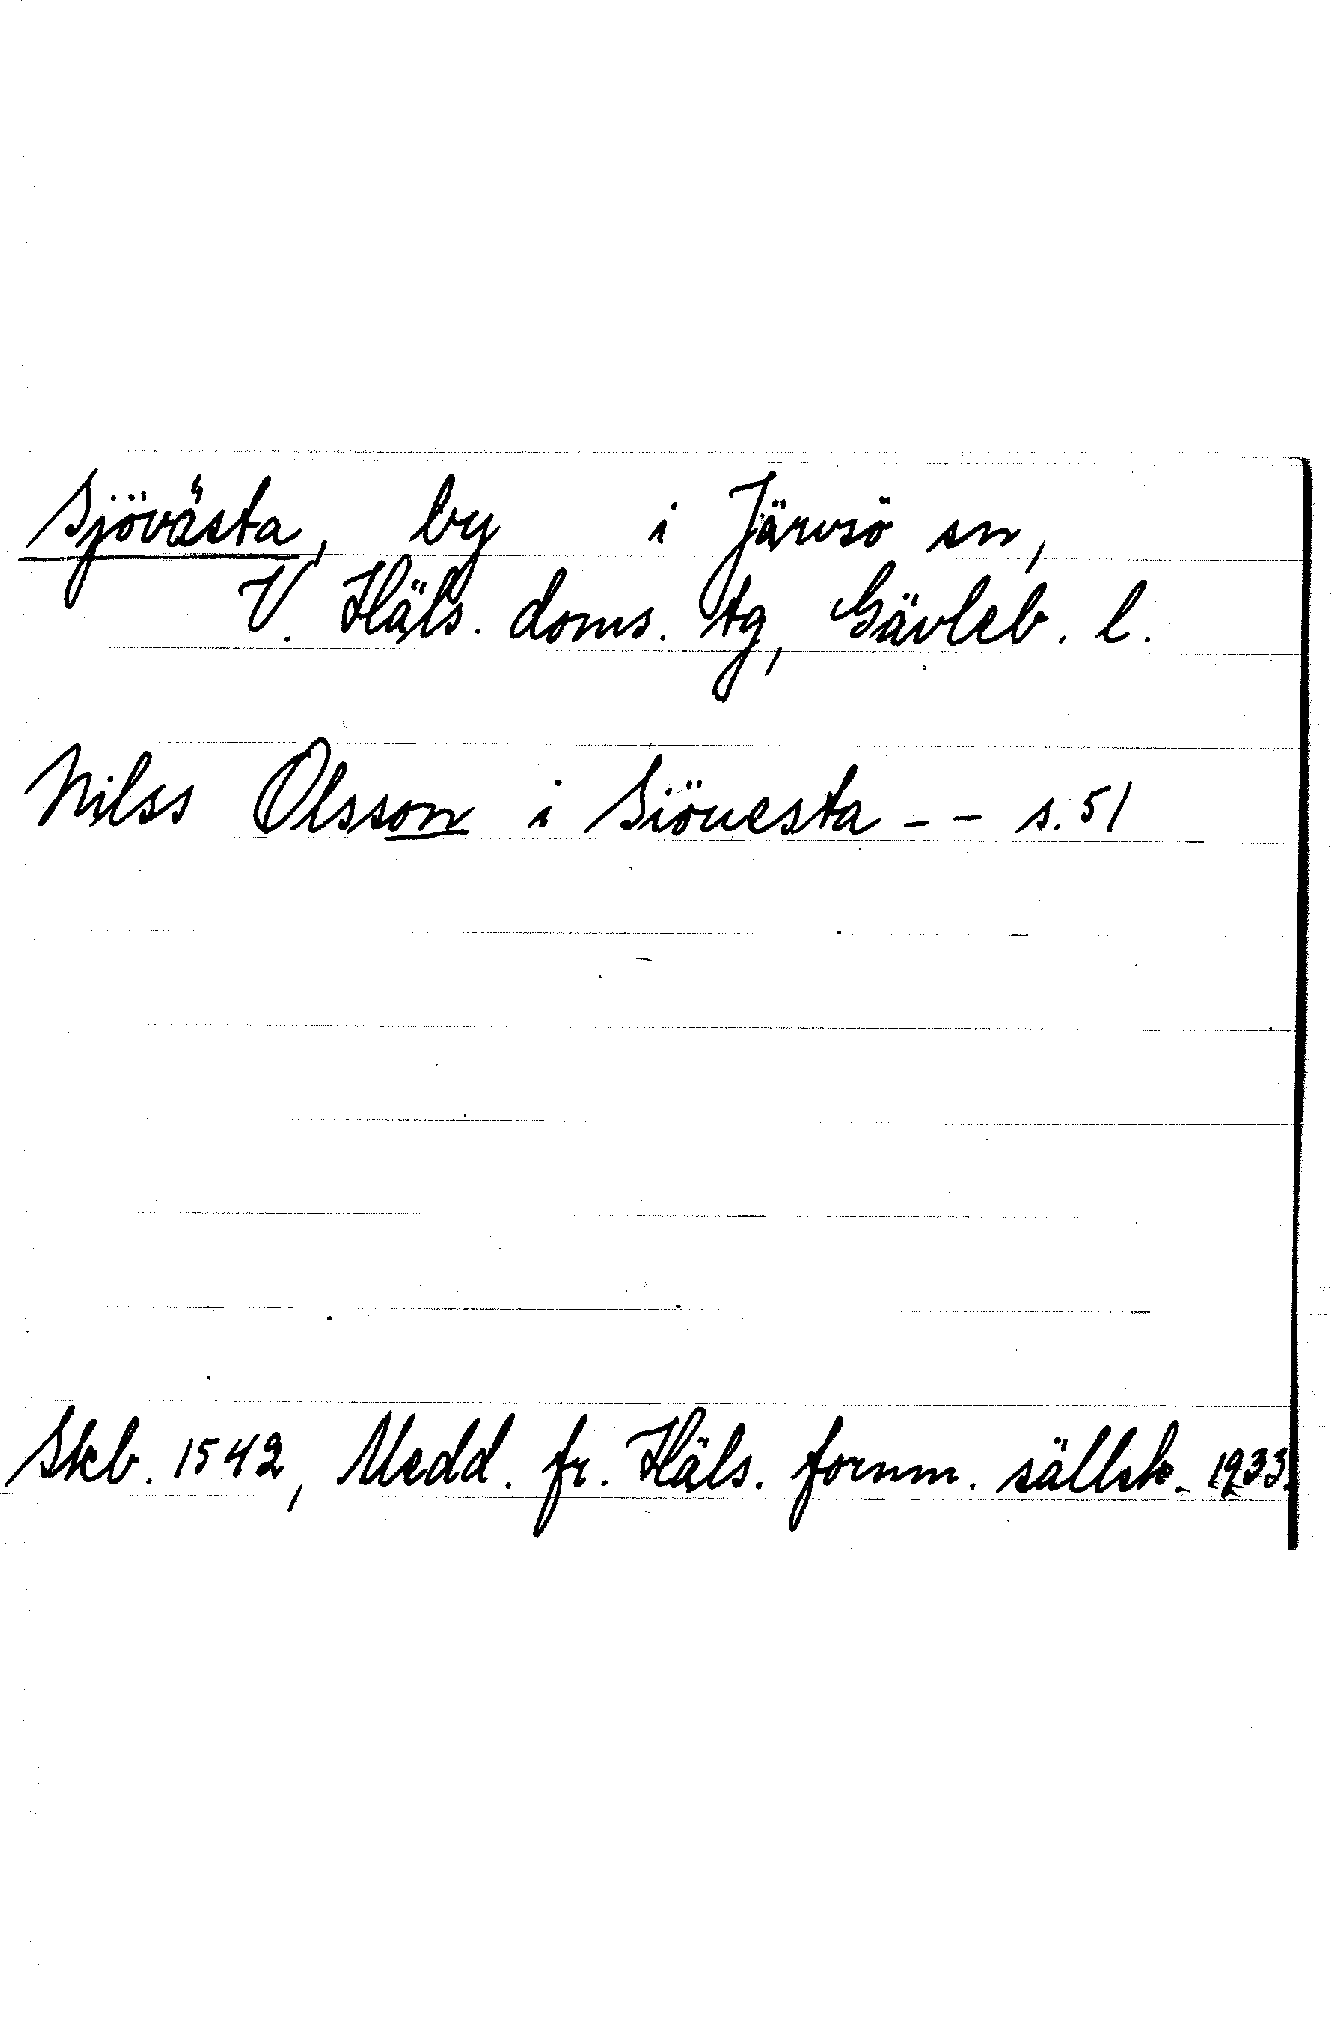 Sjövästa, by i Järvsö sn,
V. Häls. doms. tg, Gävleb. l.
Nilss Olsson i Siöuesta - - s. 51
Skb. 1542, Medd. fr. Häls. fornm. sällsk. 1933.